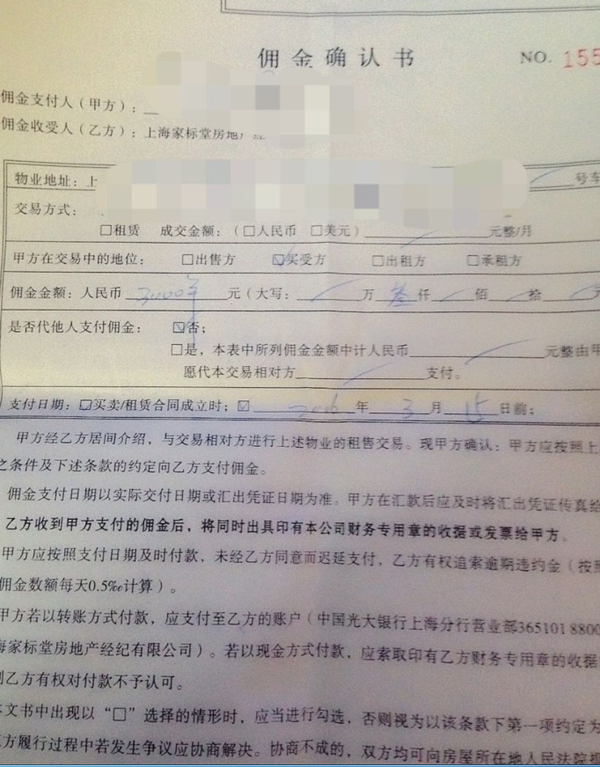 佣金确认书 NO. 155
佣金支付人(甲方):
佣金收受人(乙方):上海家标堂房地产经
物业地址:上 号车
交易方式:
□租赁 成交金额:(□人民币 □美元) 元整/月
甲方在交易中的地位: □出售方 ☑买受方 □出租方 □承租方
佣金金额:人民币 3000 元(大写: 万 叁仟 佰 拾 元
是否代他人支付佣金: ☑否;
□是,本表中所列佣金金额中计人民币 元整由甲
愿代本交易相对方 支付。
支付日期:☑买卖/租赁合同成立时;☑ 2016 年 3 月 15 日前;
甲方经乙方居间介绍,与交易相对方进行上述物业的租售交易。现甲方确认:甲方应按照上
之条件及下述条款的约定向乙方支付佣金。
佣金支付日期以实际交付日期或汇出凭证日期为准。甲方在汇款后应及时将汇出凭证传真给
乙方收到甲方支付的佣金后,将同时出具印有本公司财务专用章的收据或发票给甲方。
甲方应按照支付日期及时付款,未经乙方同意而迟延支付,乙方有权追索逾期违约金(按照
佣金数额每天0.5‰计算)。
甲方若以转账方式付款,应支付至乙方的账户(中国光大银行上海分行营业部365101 8800
海家标堂房地产经纪有限公司)。若以现金方式付款,应索取印有乙方财务专用章的收据
则乙方有权对付款不予认可。
本文书中出现以“□”选择的情形时,应当进行勾选,否则视为以该条款下第一项约定为
方履行过程中若发生争议应协商解决。协商不成的,双方均可向房屋所在地人民法院提